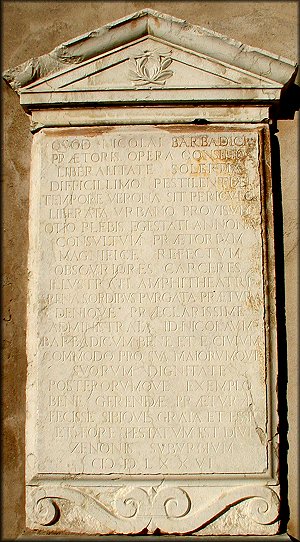 QVOD NICOLAI BARBADICI
PRÆTORIS OPERA CONSILIO
LIBERALITATE SOLERTIA
DIFFICILLIMO PESTILENTIÆ
TEMPORE VERONA SIT PERICVLO
LIBERATA VRBANO PROVISVM
OTIO PLEBIS EGESTATI ANNONÆ
CONSVLTVM PRÆTORIVM
MAGNIFICE REFECTVM
OBSCVRIORES CARCERES
ILLVSTRATI AMPHITHEATRI
ARENA SORDIBVS PVRGATA PRÆTVRA
DENIQVE PRÆCLARISSIME
ADMINISTRATA ID NICOLAVM
BARBADICVM BENE ET E CIVIVM
COMMODO PRO SVA MAIORVMQVE
SVORVM DIGNITATE
POSTERORVMQVE EXEMPLO
BENE GERENDÆ PRÆTVRÆ
FECISSE SIBIQVE GRATA ET ESSE
ET FORE TESTATVM EST DIVI
ZENONIS SVBVRBIVM
CIƆ IƆ LXXVI